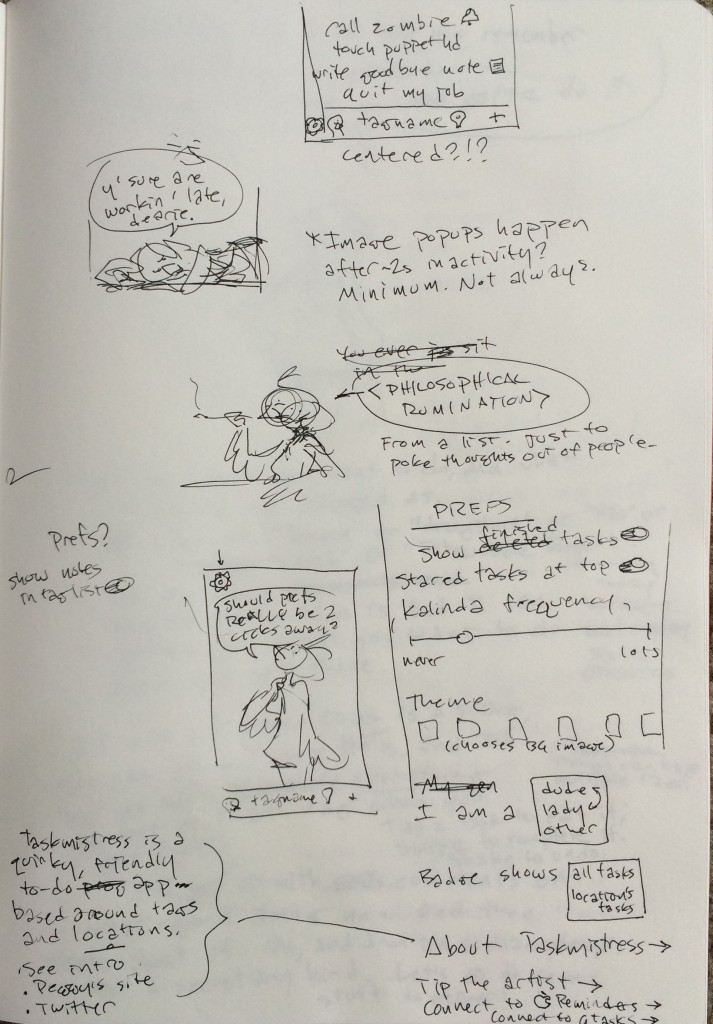 call zombie
touch puppet hd
write goodbye note
quit my job
tagname +
centered?!?
y'sure are
workin' late,
dearie.
*Image popups happen
after ~2s inactivity?
Minimum. Not always.
You ever is sit
in the
<PHILOSOPHICAL
RUMINATION>
From a list. Just to
poke thoughts out of people.
Prefs?
show notes
in taglist
should prefs
REALLY be 2
clicks away?
tagname +
PREFS
finished
Show deleted tasks
Stared tasks at top
Kalinda frequency,
never lots
Theme
(chooses BG image)
My
I am a
dude
lady
other
Badge shows
all tasks
location's
tasks
Taskmistress is a
quirky, friendly
to-do app
based around tags
and locations.
• See intro
• Peggy's site
• Twitter
About Taskmistress →
Tip the artist →
Connect to Reminders →
Connect to Gtasks →